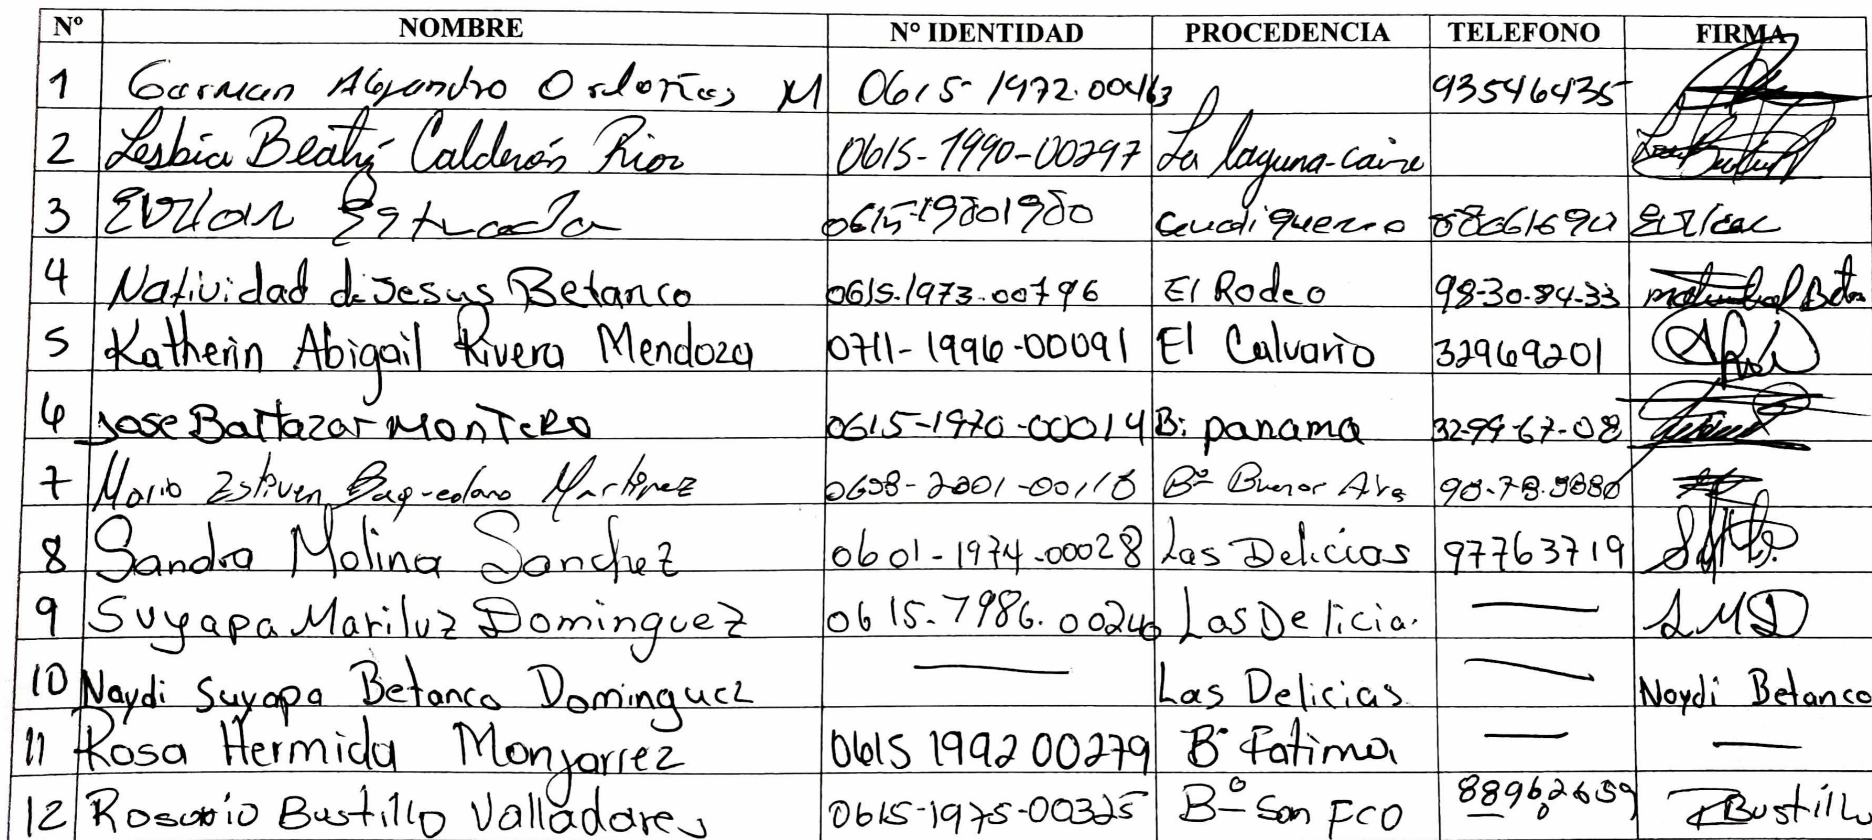 Nº NOMBRE Nº IDENTIDAD PROCEDENCIA TELEFONO FIRMA
1 German Alejandro Ordoñez M 0615-1972-00463 93546435
2 Lesbia Beatriz Calderón Rios 0615-1990-00297 La laguna-caire
3 Estrada 0615-19801980
4 Natividad de Jesus Betanco 0615-1973-00796 El Rodeo 98-30-84-33
5 Katherin Abigail Rivera Mendoza 0711-1996-00091 El Calvario 32969201
6 Jose Baltazar Montero 0615-1970-00014 B: panama 3299-67-08
7 Mario Estiven Baquedano Martinez Bº
8 Sandra Molina Sanchez 0601-1974-00028 Las Delicias 97763719
9 Suyapa Mariluz Dominguez 0615-1986-00240 Las Delicia. — SMD
10 Naydi Suyapa Betanco Dominguez — Las Delicias — Naydi Betanco
11 Rosa Hermida Monjarrez 0615 1992 00279 Bº Fatima — —
12 Rosario Bustillo Valladares 0615-1975-00325 Bº San FCO 88962659 RBustillo